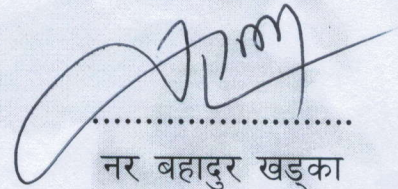 ..........................................
नर बहादुर खड्का